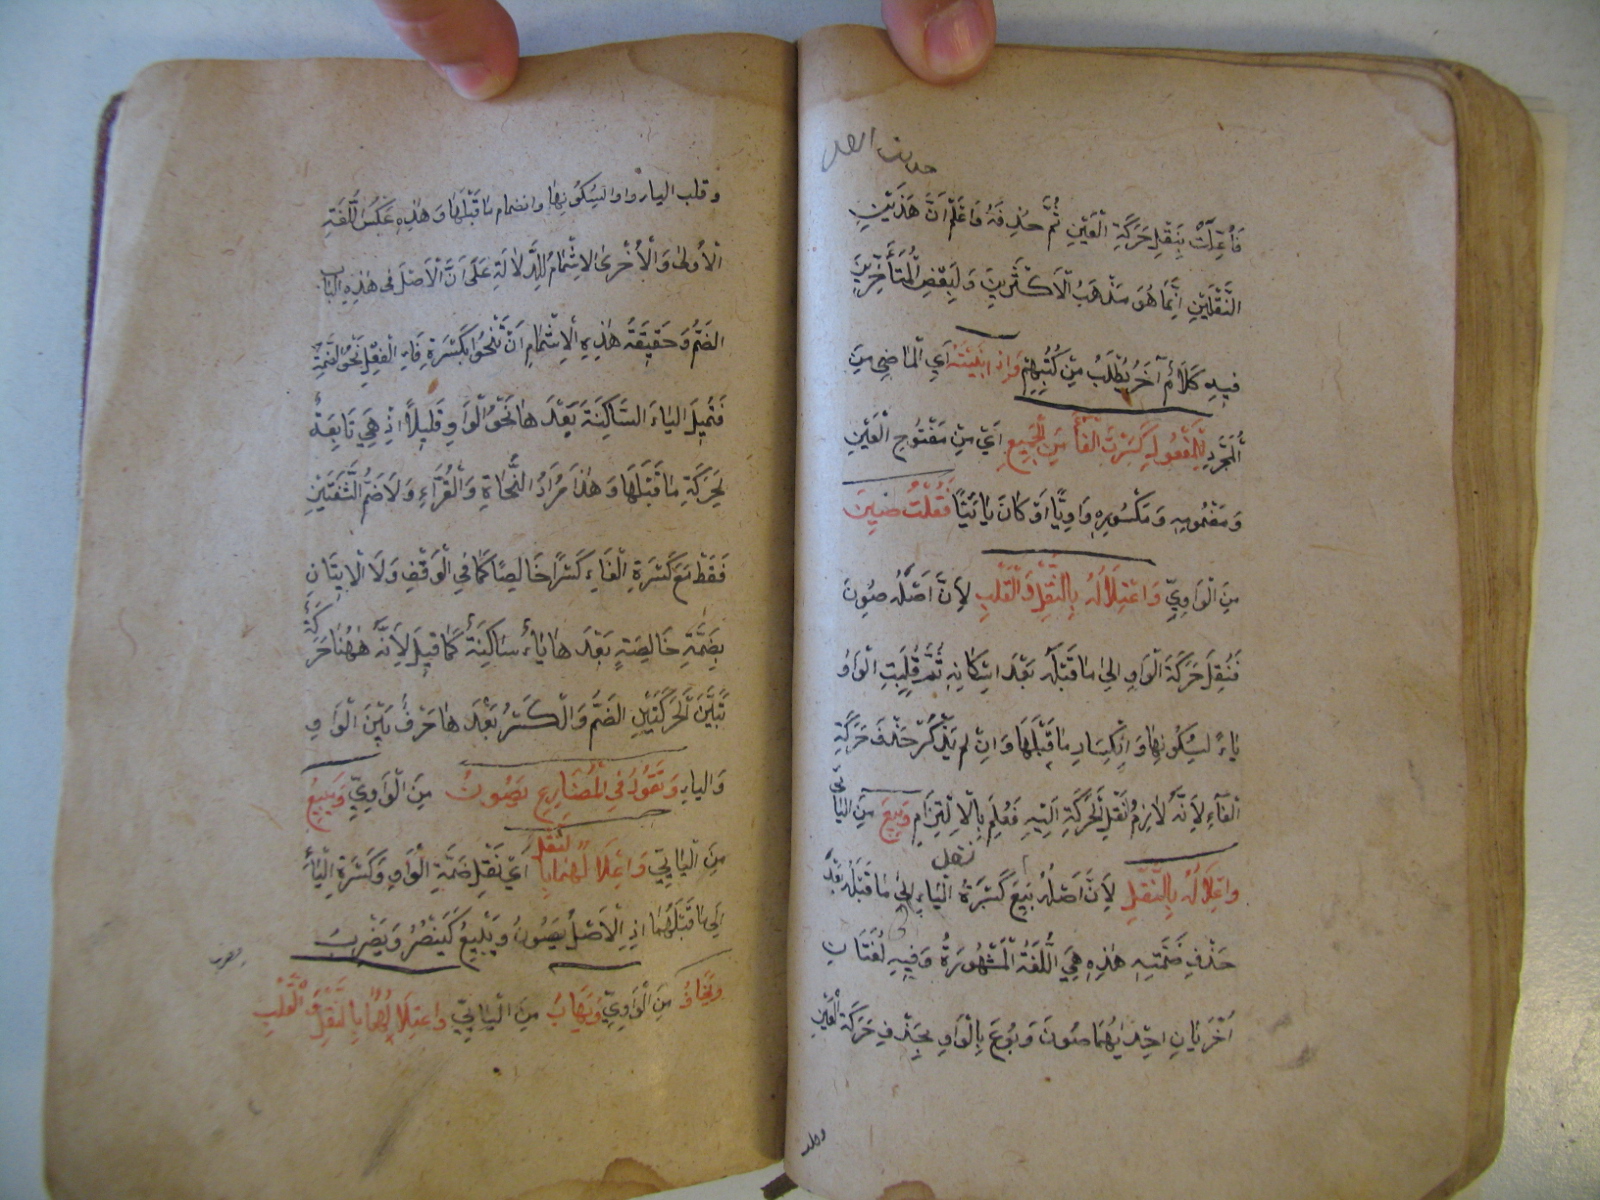 فأعلت بنقل حركة العين ثم حذفه واعلم ان هذين
النقلين انما هو مذهب الاكثرين ولبعض المتأخرين
فيه كلام آخر يطلب من كتبهم واذا بنيته اي الماضي من
المجرد للمفعول كسرت الفاء من الجميع اي من مفتوح العين
ومضمومه ومكسوره واويا او كان يائيا فقلت صين
من الواوي واعتلاله بالنقل والقلب لان اصله صون
فنقل حركة الواو الى ما قبله بعد اسكانه ثم قلبت الواو
ياء لسكونها وانكسار ما قبلها وان لم يذكر حذف حركة
الفاء لانه لازم نقل الحركة اليه فعلم بالالتزام وبيع من اليائي
نقل
واعلاله بالنقل لان اصله بيع كسرة الياء الى ما قبله بعد
حذف ضمته هذه هي اللغة المشهورة وفيه لغتان
اخريان احديهما صون وبوع بالواو بحذف حركة العين
وقلب الياء واوا لسكونها وانضمام ما قبلها وهذه عكس اللغة
الاولى والاخرى الاشمام للدلالة على ان الاصل في هذه الباب
الضم وحقيقة هذه الاشمام ان تنحو بكسرة فاء الفعل نحو الضمة
فتميل الياء الساكنة بعدها نحو الواو قليلا اذ هي تابعة
لحركة ما قبلها وهذا مراد النحاة والقراء ولا ضم الشفتين
فقط مع كسرة الفاء كسرا خالصا كما في الوقف ولا الاتيان
بضمة خالصة بعدها ياء ساكنة كما قيل لانه ههنا حركة
بين الحركتين الضم والكسر بعدها حرف بين الواو
والياء وتقول في المضارع يصون من الواوي ويبيع
من اليائي واعلالهما بالنقل اي نقل ضمة الواو وكسرة الياء
الى ما قبلهما اذ الاصل يصون ويبيع كينصر ويضرب
ويخاف من الواوي ويهاب من اليائي واعتلالهما بالنقل والقلب